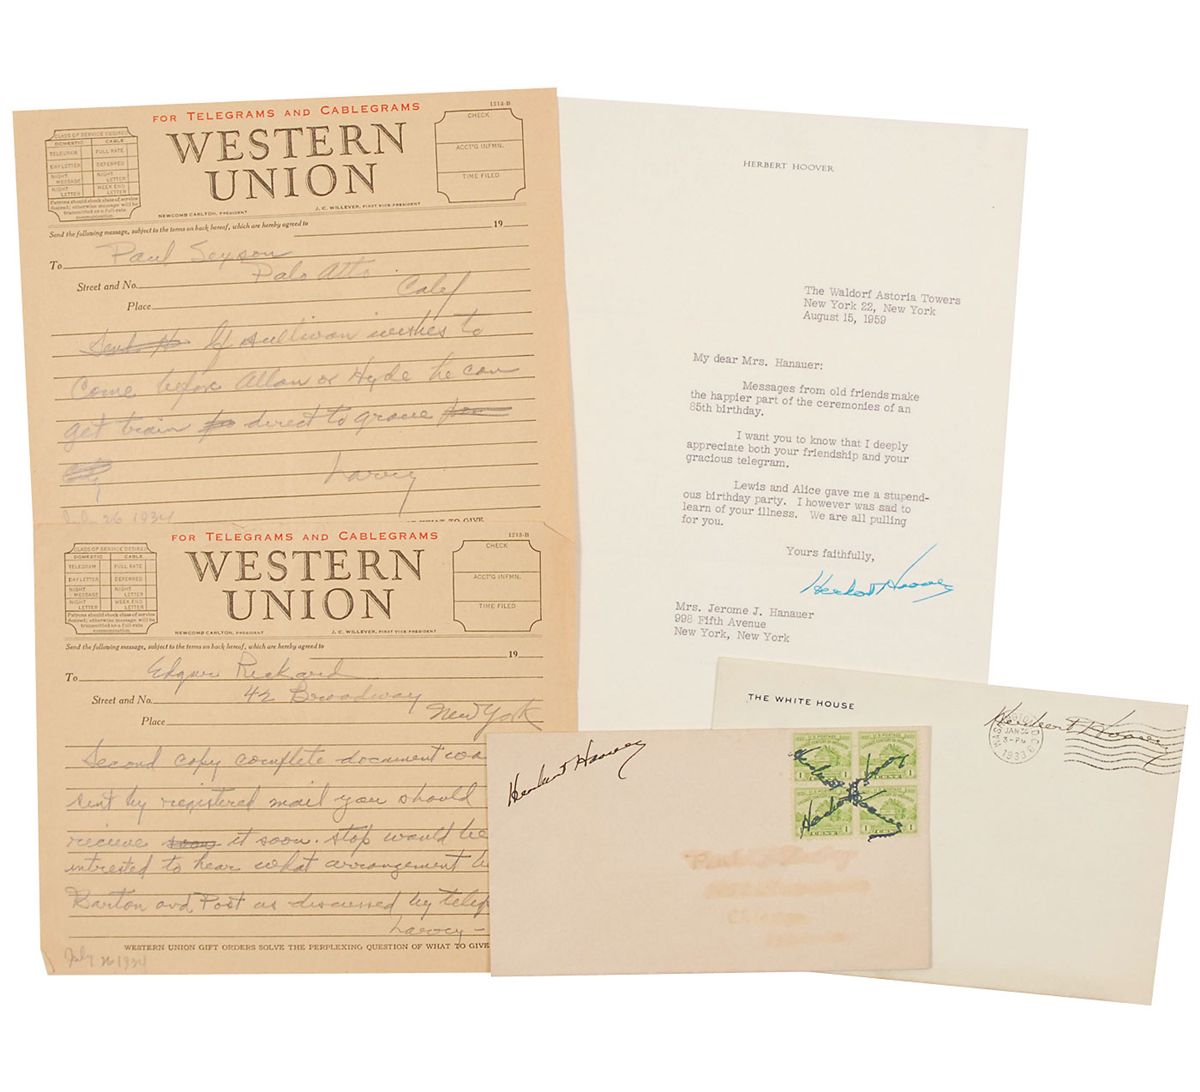 FOR TELEGRAMS AND CABLEGRAMS
1212-B
WESTERN
UNION
CLASS OF SERVICE DESIRED
DOMESTIC CABLE
TELEGRAM FULL RATE
DAY LETTER DEFERRED
NIGHT MESSAGE NIGHT LETTER
NIGHT LETTER WEEK END LETTER
Patrons should check class of service
desired; otherwise message will be
transmitted as a full-rate
communication.
CHECK
ACCT'G INFMN.
TIME FILED
NEWCOMB CARLTON, PRESIDENT
J. C. WILLEVER, FIRST VICE-PRESIDENT
Send the following message, subject to the terms on back hereof, which are hereby agreed to
19
To Paul Sexson
Street and No. Palo Alto
Place Calif
If Sullivan wishes to
Come before Allan or Hyde he can
get train direct to grove
Larry
26 1934
WHAT TO GIVE
FOR TELEGRAMS AND CABLEGRAMS
WESTERN
UNION
CLASS OF SERVICE DESIRED
DOMESTIC CABLE
TELEGRAM FULL RATE
DAY LETTER DEFERRED
NIGHT MESSAGE NIGHT LETTER
NIGHT LETTER WEEK END LETTER
Patrons should check class of service
desired; otherwise message will be
transmitted as a full-rate
communication.
CHECK
ACCT'G INFMN.
TIME FILED
NEWCOMB CARLTON, PRESIDENT
J. C. WILLEVER, FIRST VICE-PRESIDENT
Send the following message, subject to the terms on back hereof, which are hereby agreed to
19
To Edgar Rickard
Street and No. 42 Broadway
Place New York
Second copy complete document
sent by registered mail you should
receive soon it soon. stop would be
intrested to hear what arrangement
Barton and Post as discussed by
Larry -
WESTERN UNION GIFT ORDERS SOLVE THE PERPLEXING QUESTION OF WHAT TO GIVE
July 26 1934
HERBERT HOOVER
The Waldorf Astoria Towers
New York 22, New York
August 15, 1959
My dear Mrs. Hanauer:
Messages from old friends make
the happier part of the ceremonies of an
85th birthday.
I want you to know that I deeply
appreciate both your friendship and your
gracious telegram.
Lewis and Alice gave me a stupend-
ous birthday party. I however was sad to
learn of your illness. We are all pulling
for you.
Yours faithfully,
Herbert Hoover
Mrs. Jerome J. Hanauer
998 Fifth Avenue
New York, New York
THE WHITE HOUSE
Herbert Hoover
JAN
3-PM
1933
D.C.
Herbert Hoover
U.S. POSTAGE
1 CENT 1
Herbert Hoover
Herbert Hoover